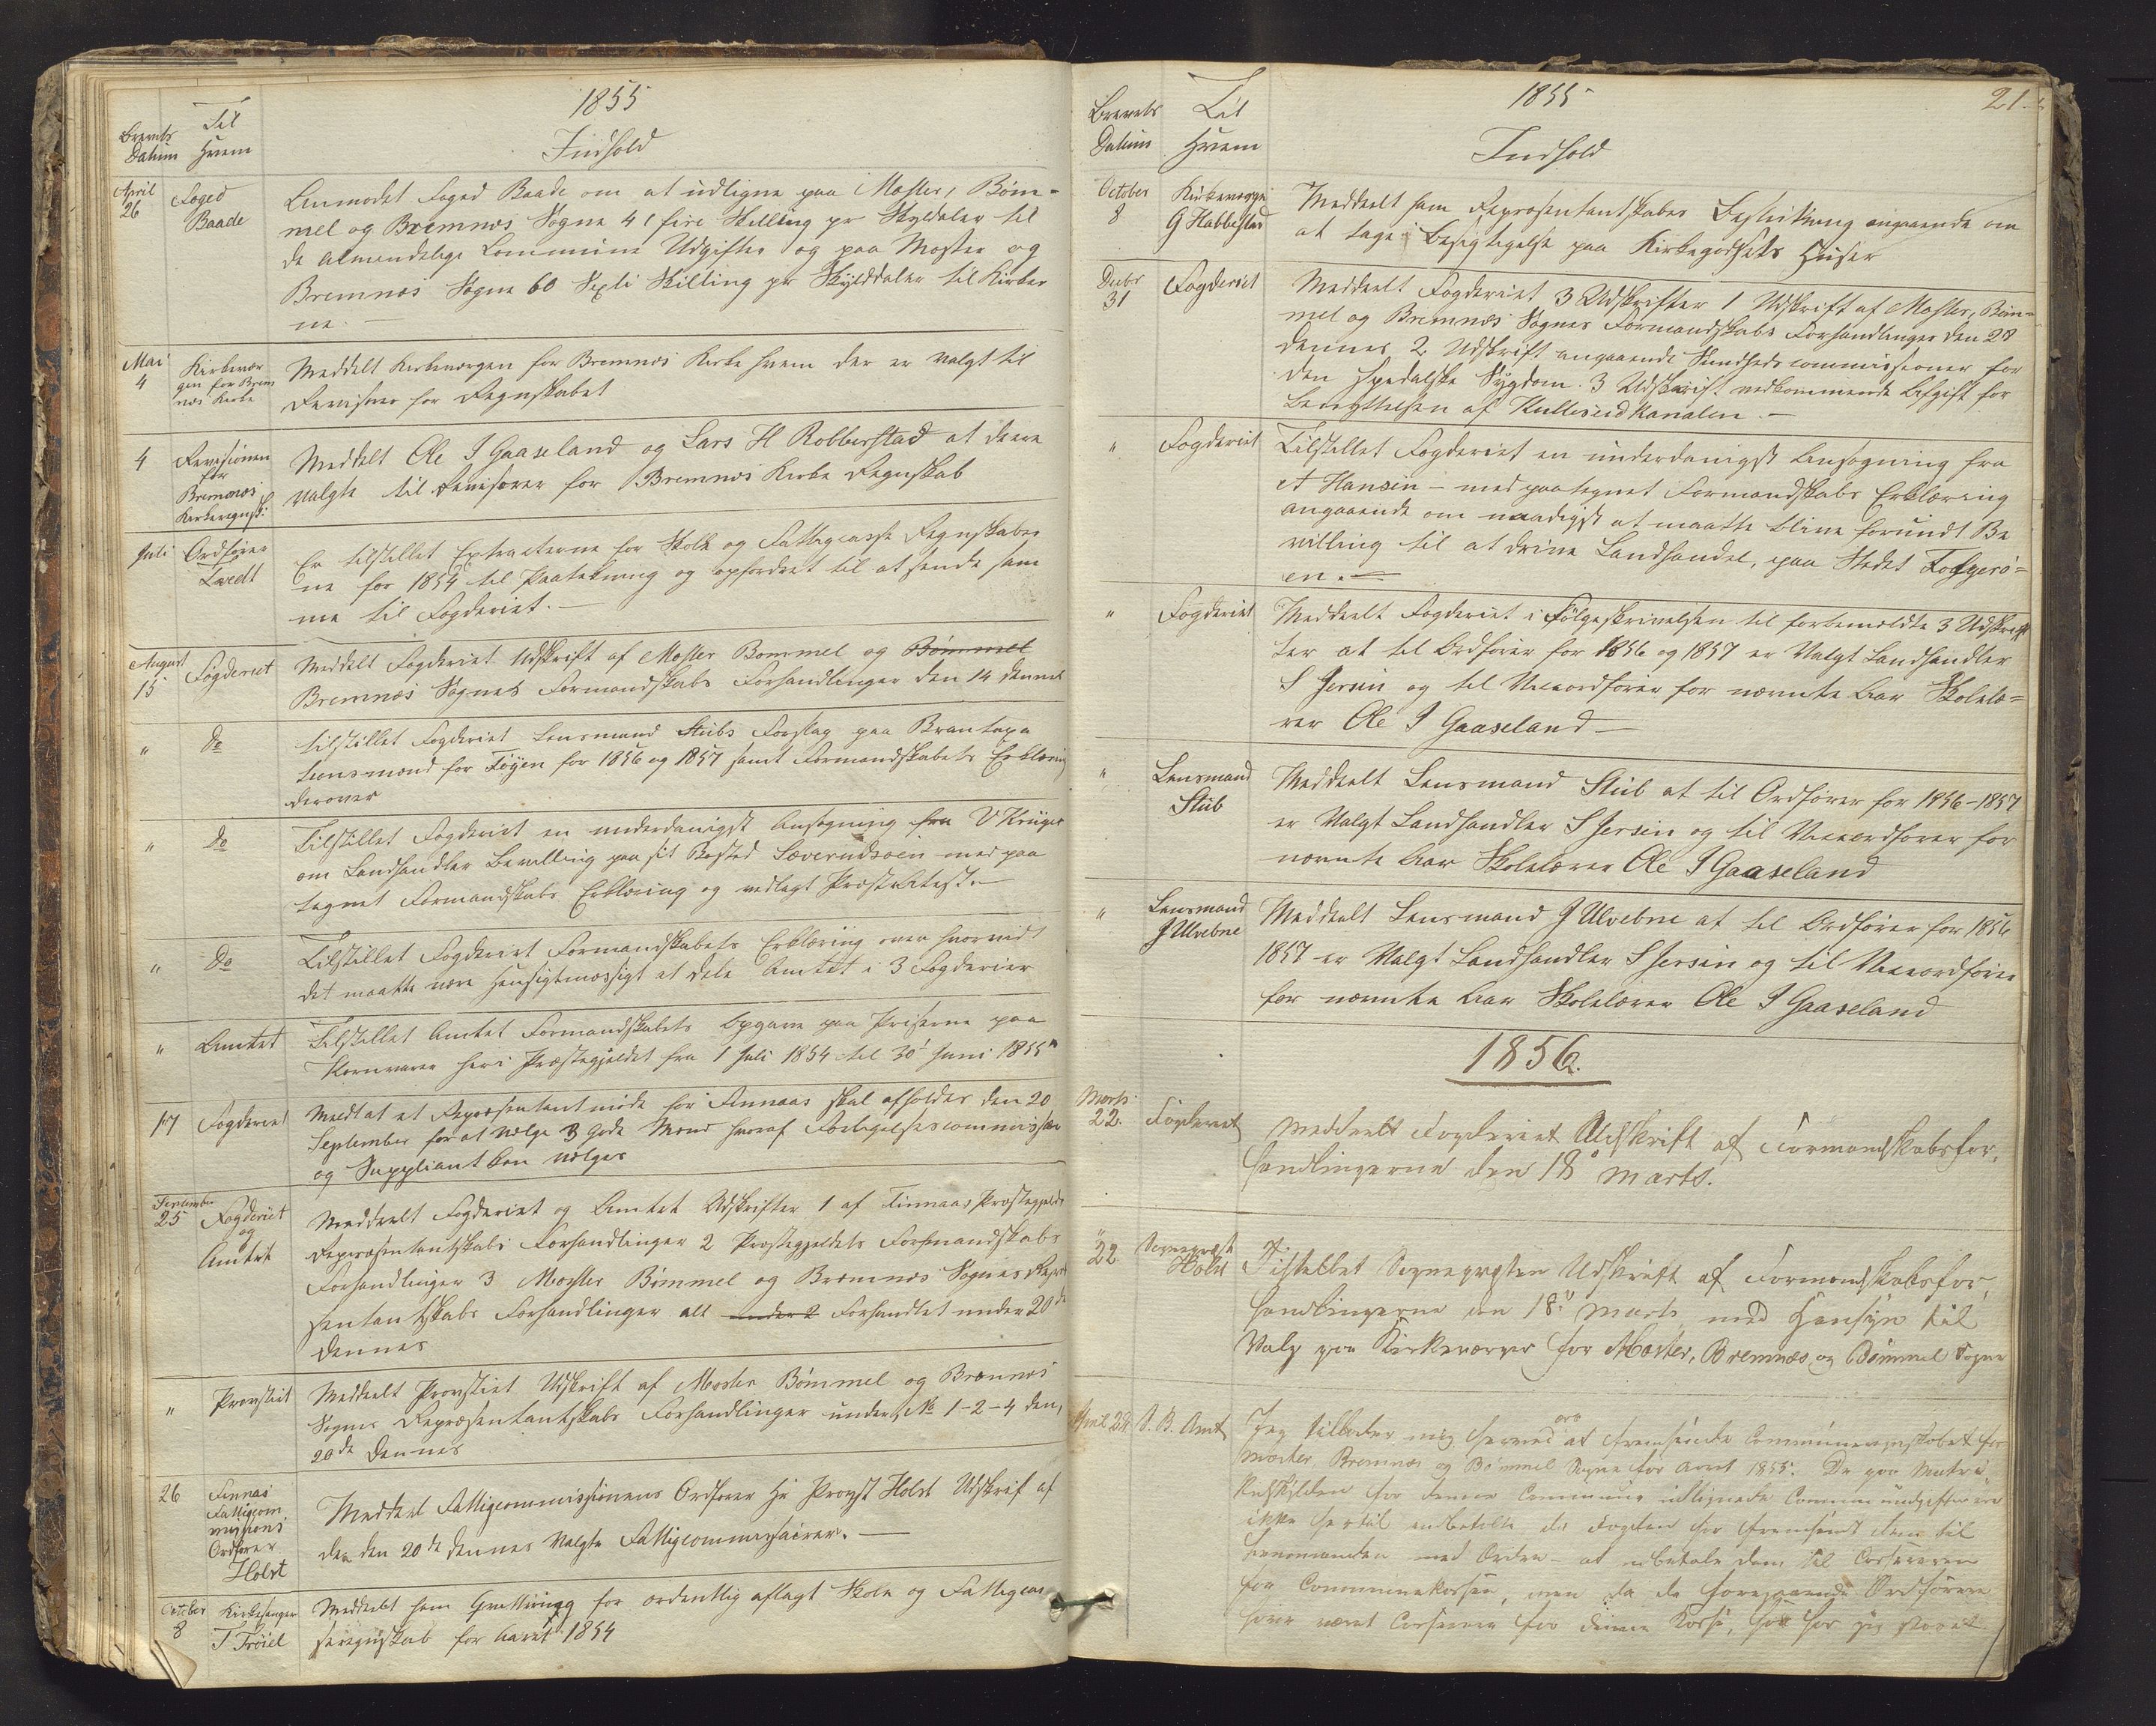 1855
Brevets
Datum
Til
Hvem
Indhold
April
26
Foged
Baade
Anmodet Foged Baade om at udligne paa Moster, Bøm-
mel og Bremnæs Sogne 4 / fire Skilling pr Skyldaler til
de almindelige Commune Udgifter og paa Moster og
Bremnæs Sogne 60 Sexti Skilling pr Skylddaler til Kirker
ne. —
Mai
4
Kirkevær
gen for Brem
næs Kirke
Meddelt Kirkeværgen for Bremnæs Kirke hvem der er valgt til
Revisorer for Regnskabet
4
Revisionen
for
Bremnæs
Kirkeregnsk:
Meddelt Ole I Gaaseland og Lars H Robberstad at de ere
valgte til Revisorer for Bremnæs Kirke Regnskab
Juli
Ordfører
Tvedt
Er tilstillet Extracterne for Skole og Fattigcasse Regnskaber
ne for 1854 til Paategning og opfordret til at sende sam
me til Fogderiet. —
August
15
Fogderiet
Meddelt Fogderiet Udskrift af Moster Bømmel og Bømmel
Bremnæs Sognes Formandskabs Forhandlinger den 14 dennes
" do
tilstillet Fogderiet Lensmand Stubs Forslag paa Brantaxa
tionsmænd for Føyen for 1856 og 1857 samt Formandskabets Erklæring
derover
" do
Tilstillet Fogderiet en underdanigst Ansøgning fra V Krüger
om Landhandler Bevilling paa sit Bosted Sæverudsøen med paa
tegnet Formandskabs Erklæring og vedlagt Præsteattest. —
" do
Tilstillet Fogderiet Formandskabets Erklæring over hvorvidt
det maatte være Hensigtmæssigt at dele Amtet i 3 Fogderier
" Amtet
Tilstillet Amtet Formandskabets Opgave paa Priserne paa
Kornvarer her i Præstegjeldet fra 1 Juli 1854 til 30 Juni 1855
17 Fogderiet
Meldt at et Repræsentantmøde for Finnaas skal afholdes den 20
September for at vælge 3 gode Mænd hvoraf Forligelsescommissair
og Suppliant kan vælges
September
25
Fogderiet
og
Amtet
Meddeelt Fogderiet og Amtet Udskrifter 1 af Finnaas Præstegjelds
Repræsentantskabs Forhandlinger 2 Præstegjeldets Formandskabs
Forhandlinger 3 Moster Bømmel og Bremnæs Sognes Repræ
sentantskabs Forhandlinger alt under 2 Forhandlet under 20de
dennes
" Provstiet
Meddeelt Provstiet Udskrift af Moster Bømmel og Bremnæs
Sognes Repræsentantskabs Forhandlinger under No 1-2-4 den
20de dennes
26
Finnaas
Fattigcom
missions
Ordfører
Holst
Meddeel Fattigcommissionens Ordfører Hr Provst Holst Udskrif af
de den 20de dennes valgte Fattigcommissairer. —
October
8
Kirkesanger
T Trøiel
Meddeelt ham Qvittering for ordentlig aflagt Skole og Fattigcas
seregnskab for Aaret 1854
1855
21
Brevets
Datum
Til
Hvem
Indhold
October
8
Kirkeværge
G Habbestad
Meddeelt ham Repræsentantskabes Beslutning angaaende om
at tage i Besigtigelse paa Kirkegodsets Huser
Decbr
31
Fogderiet
Meddeelt Fogderiet 3 Udskrifter 1 Udskrift af Moster, Bøm-
mel og Bremnæs Sognes Formandskabs Forhandlinger den 28
dennes 2 Udskrift angaaende Sundhedscommissioner for
den spedalske Sygdom. 3 Udskrift vedkommende Afgift for
Benyttelsen af Kulleseidkanalen. —
" Fogderiet
Tilstillet Fogderiet en underdanigst Ansøgning fra
A Hansen — med paategnet Formandskabs Erklæring
angaaende om naadigst at maatte blive forundt Be
villing til at drive Landhandel, paa Stedet Folgerø-
en. —
" Fogderiet
Meddeelt Fogderiet i Følgeskrivelsen til forbemeldte 3 Udskrif
ter at til Ordfører for 1856 og 1857 er Valgt Landhandler
S Jersin og til Viceordfører for nævnte Aar Skolelæ=
rer Ole I Gaaseland —
" Lensmand
Stub
Meddeelt Lensmand Stub at til Ordfører for 1856-1857
er Valgt Landhandler S Jersin og til Viceordfører for
nævnte Aar Skolelærer Ole I Gaaseland
" Lensmand
J Ulvebne
Meddeelt Lensmand J Ulvebne at til Ordfører for 1856
1857 er Valgt Landhandler S Jersin og til Viceordfører
for nævnte Aar Skolelærer Ole I Gaaseland
1856.
Marts
22.
Fogderiet
Meddeelt Fogderiet Udskrift af Formandskabsfor-
handlingerne den 18de Marts.
"
22
Sognepræst
Holst
Tilstillet Sognepræsten Udskrift af Formandskabsfor-
handlingerne den 18de Marts med Hensyn til
Valg paa Kirkeværger for Moster, Bremnæs og Bømmel Sogne
April 25 S. B. Amt
Jeg tillader mig herved at fremsende Communeregnskabet for
Moster, Bremnæs og Bømmel Sogne for Aaret 1855. De paa Matri-
kulskylden for denne Commune udlignede Communeudgifter ere
ikke hertil indbetalte da Fogden har fremsendt dem til
Lensmanden med Ordre at udbetale dem til Cassereren
for Communekassen, men da de foregaaende Ordførere
have været Casserere for denne Kasse, har jeg